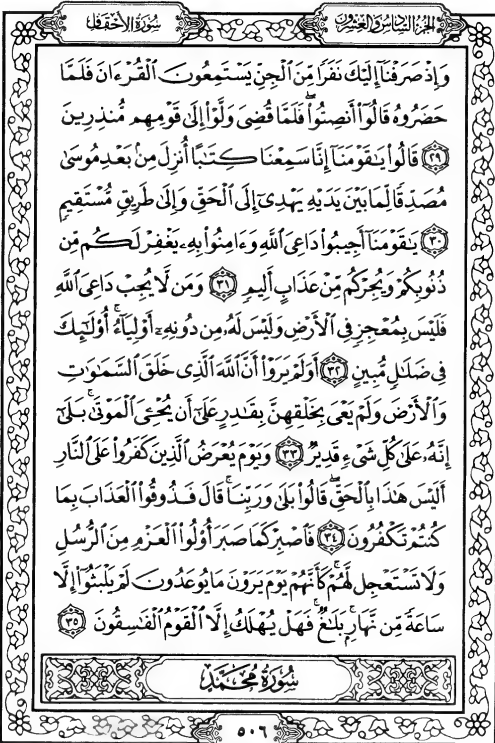 الجزء السادس والعشرون
سورة الأحقاف
وَإِذْ صَرَفْنَآ إِلَيْكَ نَفَرًا مِّنَ ٱلْجِنِّ يَسْتَمِعُونَ ٱلْقُرْءَانَ فَلَمَّا
حَضَرُوهُ قَالُوٓا۟ أَنصِتُوا۟ ۖ فَلَمَّا قُضِىَ وَلَّوْا۟ إِلَىٰ قَوْمِهِم مُّنذِرِينَ
٢٩ قَالُوا۟ يَٰقَوْمَنَآ إِنَّا سَمِعْنَا كِتَٰبًا أُنزِلَ مِنۢ بَعْدِ مُوسَىٰ
مُصَدِّقًا لِّمَا بَيْنَ يَدَيْهِ يَهْدِىٓ إِلَى ٱلْحَقِّ وَإِلَىٰ طَرِيقٍ مُّسْتَقِيمٍ
٣٠ يَٰقَوْمَنَآ أَجِيبُوا۟ دَاعِىَ ٱللَّهِ وَءَامِنُوا۟ بِهِۦ يَغْفِرْ لَكُم مِّن
ذُنُوبِكُمْ وَيُجِرْكُم مِّنْ عَذَابٍ أَلِيمٍ ٣١ وَمَن لَّا يُجِبْ دَاعِىَ ٱللَّهِ
فَلَيْسَ بِمُعْجِزٍ فِى ٱلْأَرْضِ وَلَيْسَ لَهُۥ مِن دُونِهِۦٓ أَوْلِيَآءُ ۚ أُو۟لَٰٓئِكَ
فِى ضَلَٰلٍ مُّبِينٍ ٣٢ أَوَلَمْ يَرَوْا۟ أَنَّ ٱللَّهَ ٱلَّذِى خَلَقَ ٱلسَّمَٰوَٰتِ
وَٱلْأَرْضَ وَلَمْ يَعْىَ بِخَلْقِهِنَّ بِقَٰدِرٍ عَلَىٰٓ أَن يُحْـِۧىَ ٱلْمَوْتَىٰ ۚ بَلَىٰٓ
إِنَّهُۥ عَلَىٰ كُلِّ شَىْءٍ قَدِيرٌ ٣٣ وَيَوْمَ يُعْرَضُ ٱلَّذِينَ كَفَرُوا۟ عَلَى ٱلنَّارِ
أَلَيْسَ هَٰذَا بِٱلْحَقِّ ۖ قَالُوا۟ بَلَىٰ وَرَبِّنَا ۚ قَالَ فَذُوقُوا۟ ٱلْعَذَابَ بِمَا
كُنتُمْ تَكْفُرُونَ ٣٤ فَٱصْبِرْ كَمَا صَبَرَ أُو۟لُوا۟ ٱلْعَزْمِ مِنَ ٱلرُّسُلِ
وَلَا تَسْتَعْجِل لَّهُمْ ۚ كَأَنَّهُمْ يَوْمَ يَرَوْنَ مَا يُوعَدُونَ لَمْ يَلْبَثُوٓا۟ إِلَّا
سَاعَةً مِّن نَّهَارٍۭ ۚ بَلَٰغٌ ۚ فَهَلْ يُهْلَكُ إِلَّا ٱلْقَوْمُ ٱلْفَٰسِقُونَ ٣٥
سورة محمد
٥٠٦